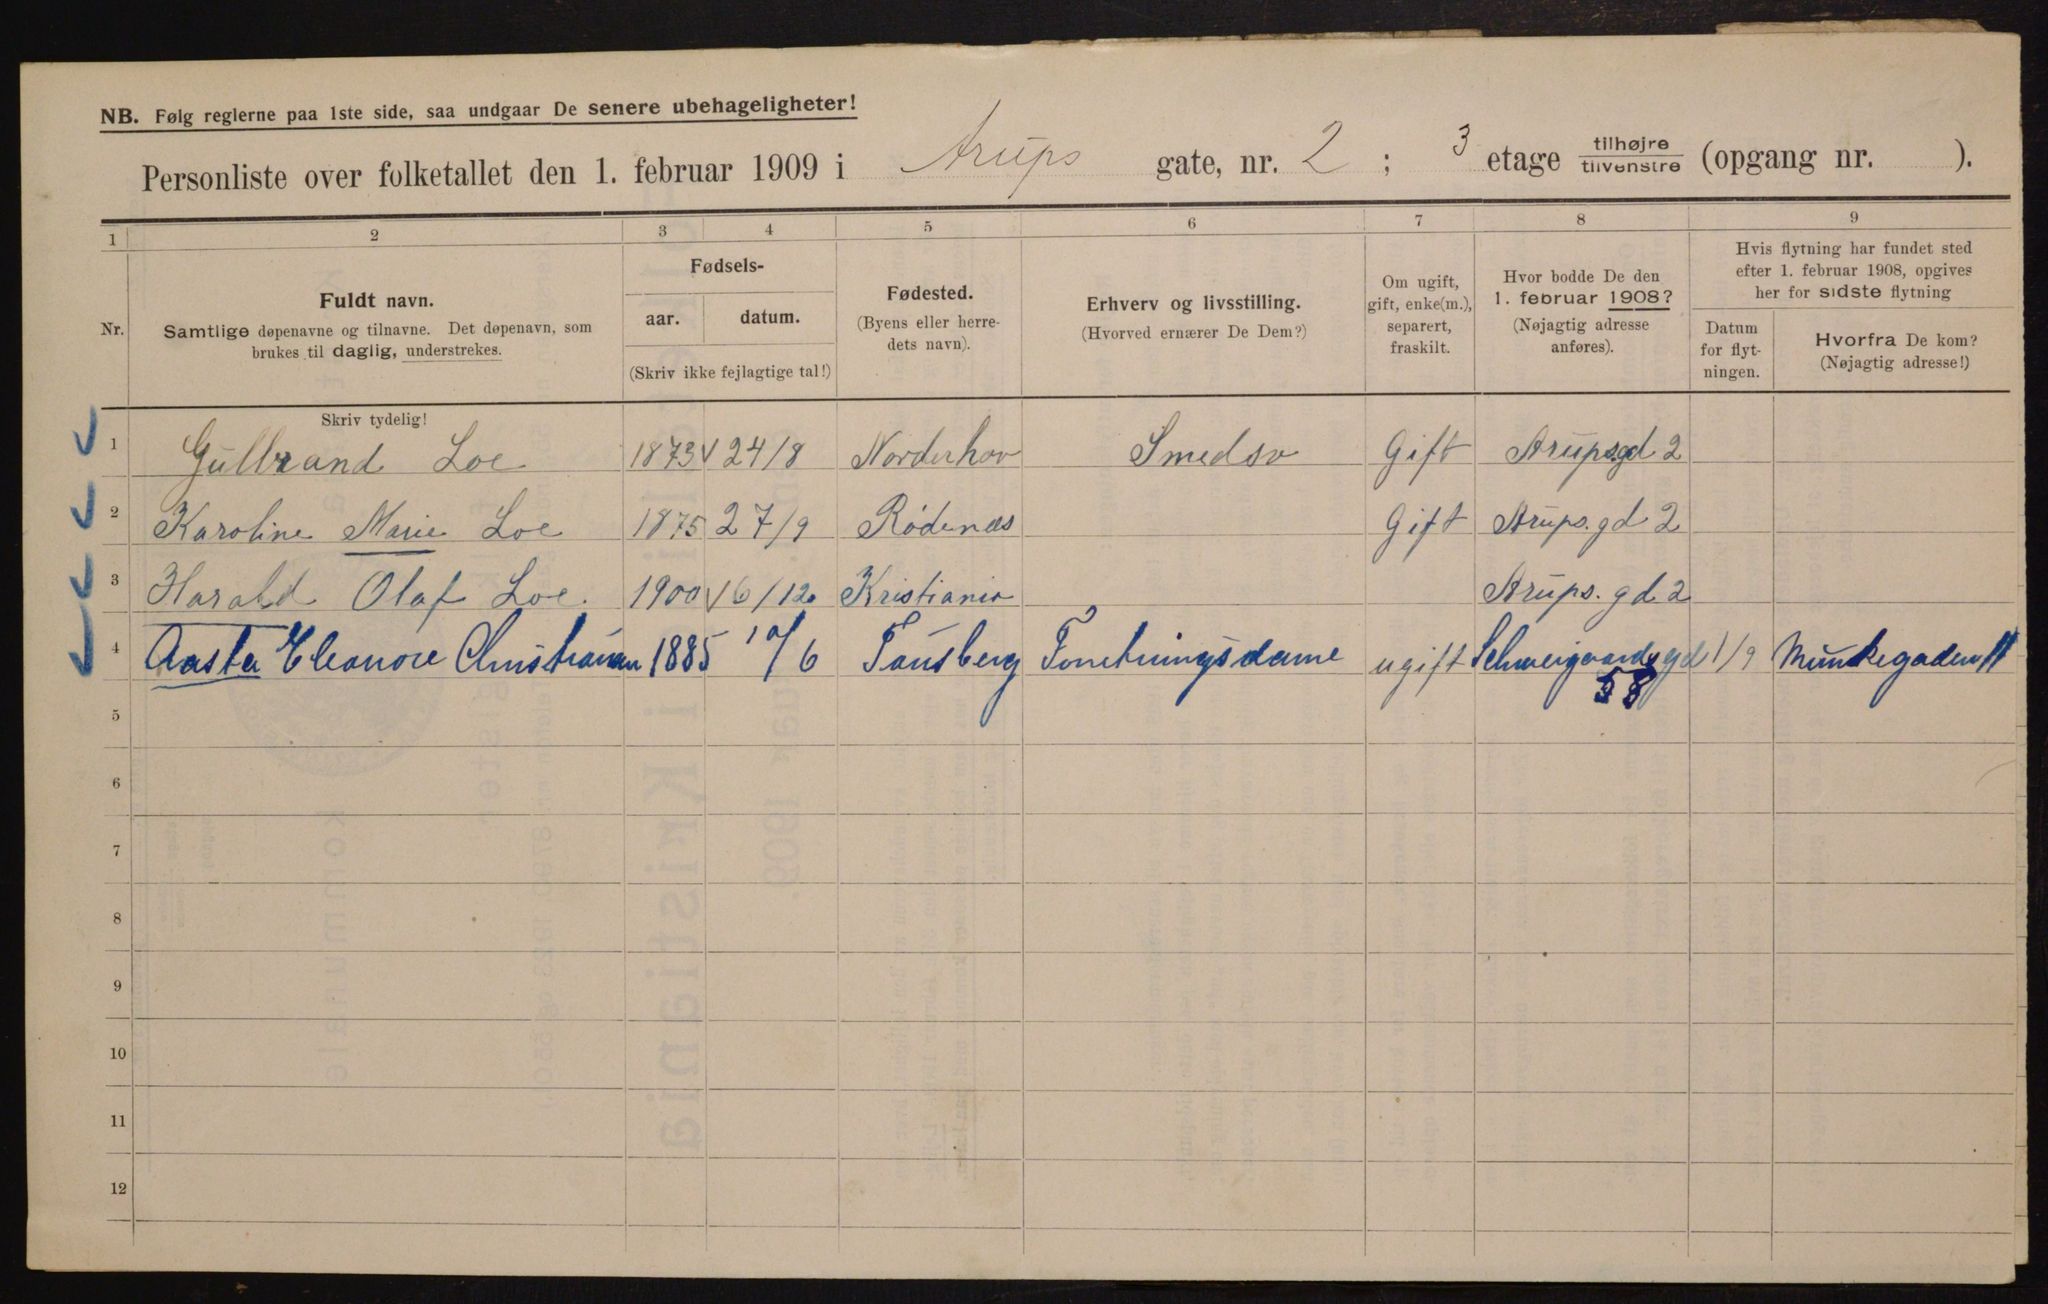 NB. Følg reglerne paa 1ste side, saa undgaar De senere ubehageligheter!
Personliste over folketallet den 1. februar 1909 i Arups gate, nr. 2 ; 3 etage tilhøjre/tilvenstre (opgang nr. ).
1 2 3 4 5 6 7 8 9
Nr.
Fuldt navn.
Samtlige døpenavne og tilnavne. Det døpenavn, som
brukes til daglig, understrekes.
Skriv tydelig!
Fødsels-
aar. datum.
(Skriv ikke fejlagtige tal!)
Fødested.
(Byens eller herre-
dets navn).
Erhverv og livsstilling.
(Hvorved ernærer De Dem?)
Om ugift,
gift, enke(m.),
separert,
fraskilt.
Hvor bodde De den
1. februar 1908?
(Nøjagtig adresse
anføres).
Hvis flytning har fundet sted
efter 1. februar 1908, opgives
her for sidste flytning
Datum
for flyt-
ningen.
Hvorfra De kom?
(Nøjagtig adresse!)
1 Gulbrand Loe 1873 24/8 Norderhov Smedsv Gift Arups.gd 2
2 Karoline Marie Loe 1875 27/9 Rødenæs Gift Arups.gd 2
3 Harald Olaf Loe. 1900 6/12 Kristiania Arups.gd 2
4 Aasta Eleonore Christiansen 1885 10/6 Tønsberg Forretningsdame ugift Schweigaardsgd 1/9 Munkegaden 11
58
5
6
7
8
9
10
11
12